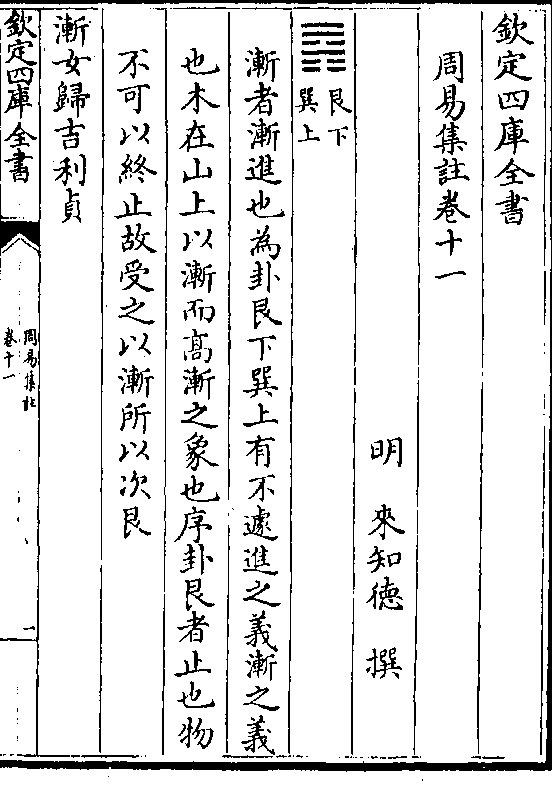 欽定四庫全書
周易集註卷十一
明 來知德 撰
艮下
巽上
漸者漸進也為卦艮下巽上有不遽進之義漸之義
也木在山上以漸而高漸之象也序卦艮者止也物
不可以終止故受之以漸所以次艮
漸女歸吉利貞
欽定四庫全書
周易集註
卷十一
一